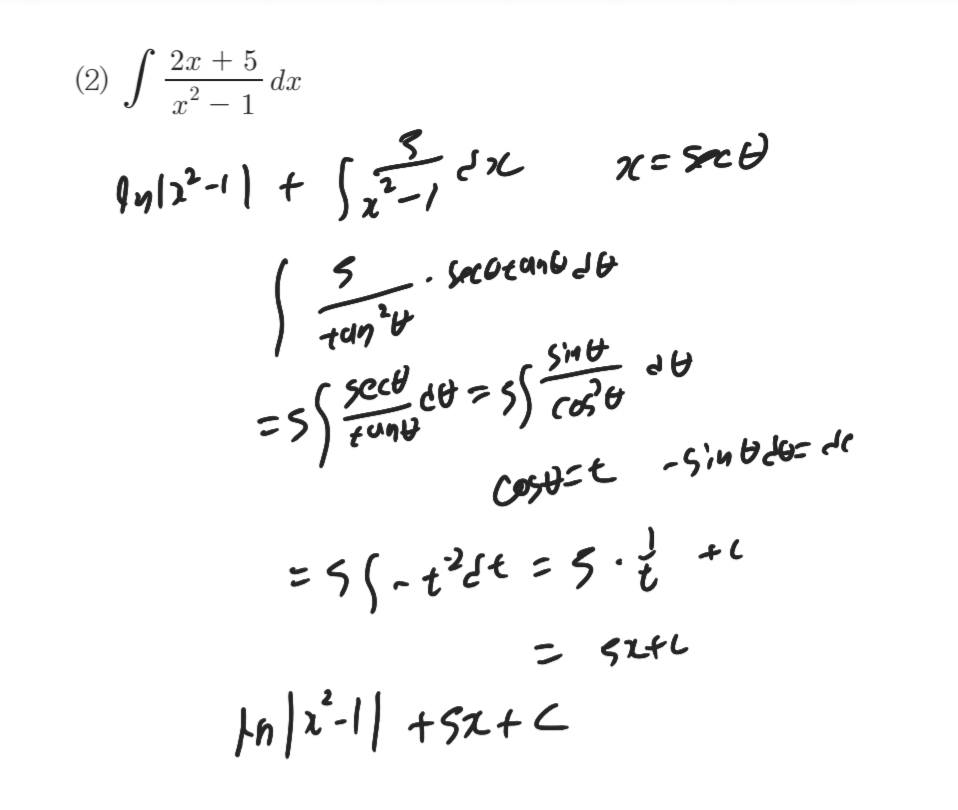 (2) ∫ (2x + 5)/(x² − 1) dx
ln|x²-1| + ∫ 5/(x²-1) dx    x = secθ
∫ 5/(tan²θ) · secθtanθdθ
= 5∫ secθ/tanθ dθ = 5∫ sinθ/cos²θ dθ
cosθ=t  -sinθdθ= dt
= 5∫-t⁻²dt = 5·1/t +c
= 5x+c
ln|x²-1| +5x+C